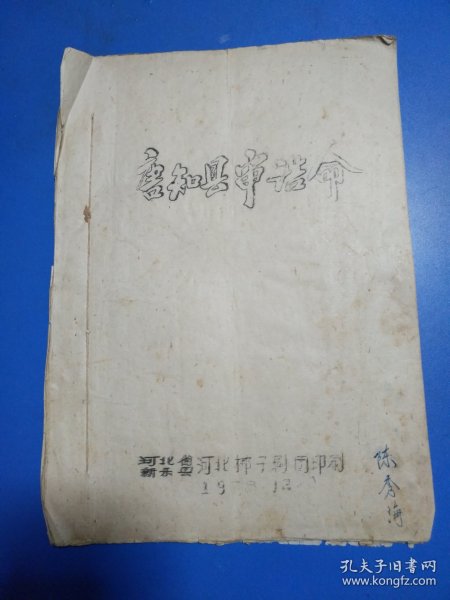 唐知县审诰命
河北省
新乐县
河北梆子剧团印刷
陈
海
孔夫子旧书网
www.kongfz.com